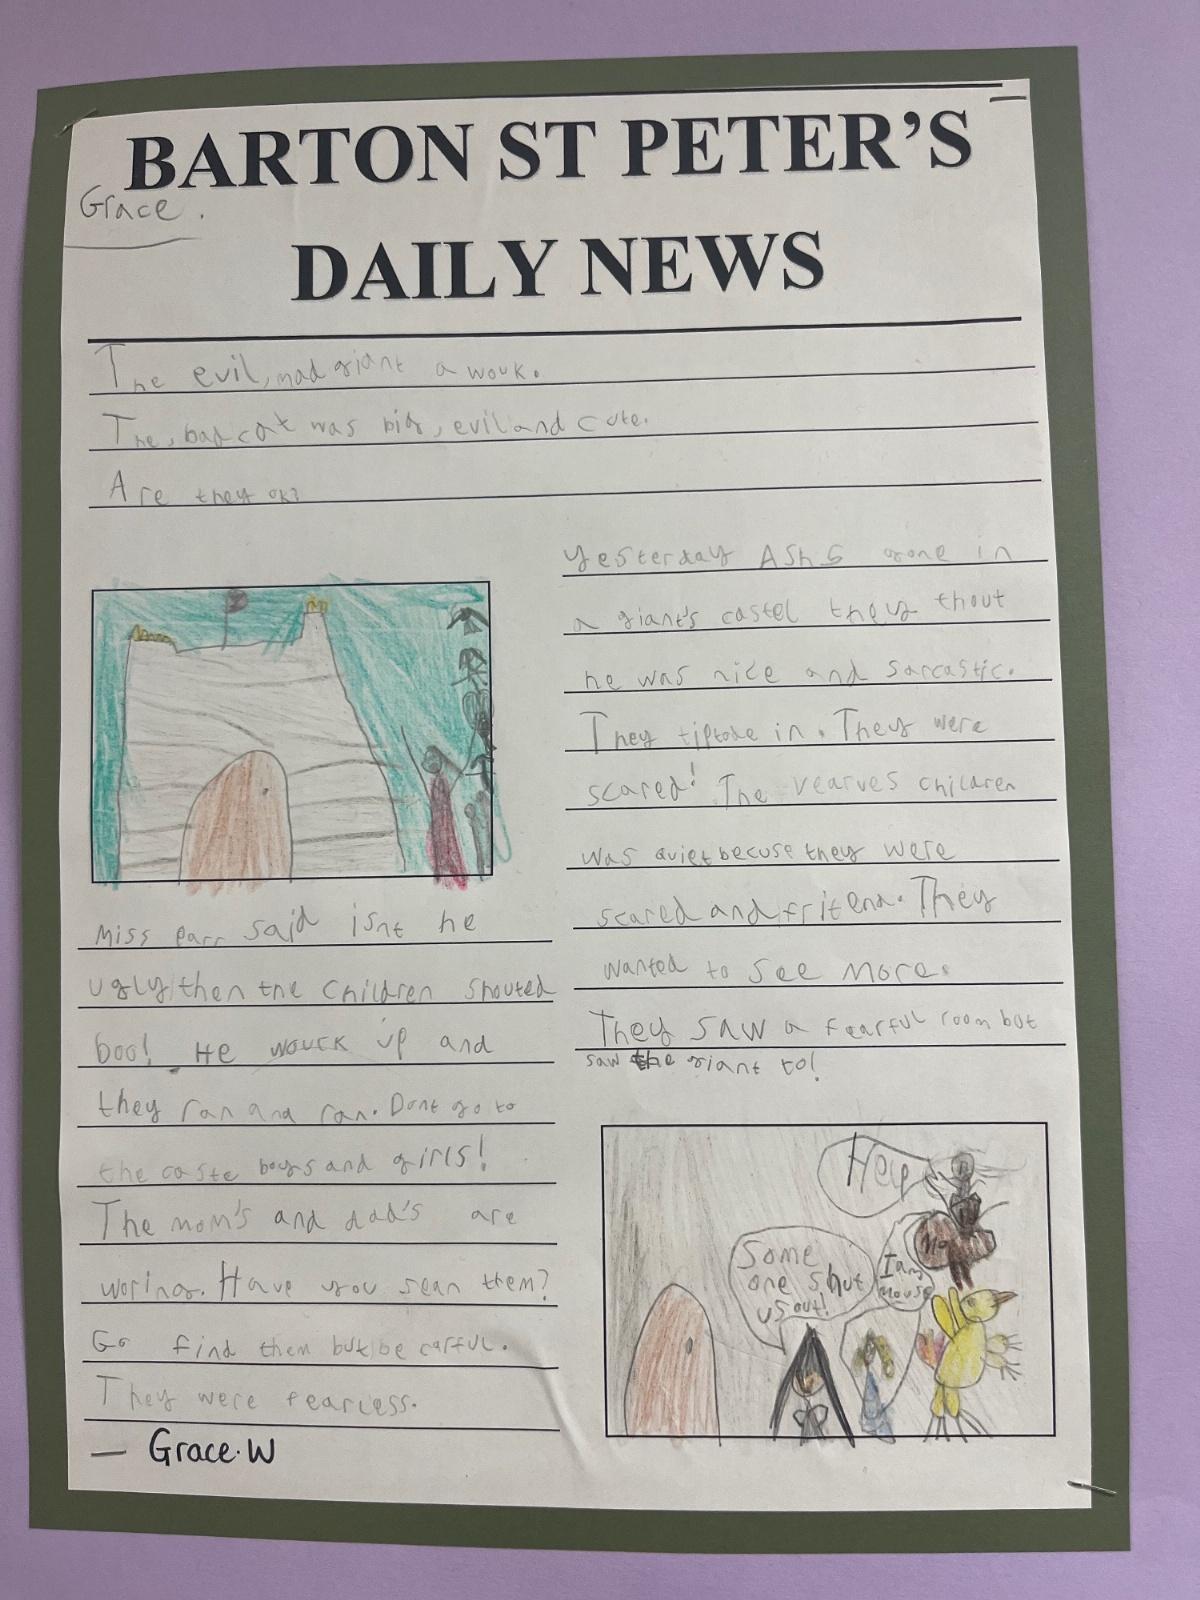 BARTON ST PETER'S
Grace.
DAILY NEWS
The evil, mad giant a wouk.
The, bad cat was big, evil and cute.
Are they ok?
Yesterday Ash 5 gone in
a giant's castel they thout
he was nice and sarcastic.
They tiptoe in. They were
scared! The vearves children
was quiet becuse they were
scared and fritend. They
wanted to see more.
They saw a fearful room but
saw the giant to!
Miss parr said isnt he
ugly then the children shouted
boo! He wouck up and
they ran and ran. Dont go to
the caste boys and girls!
The mom's and dad's are
woring. Have you sean them?
Go find them but be carful.
They were fearless.
— Grace.W
Help
Some
one shut
us out!
I am
mouse